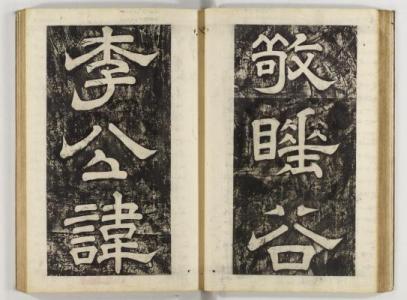 敬谷
李公諱